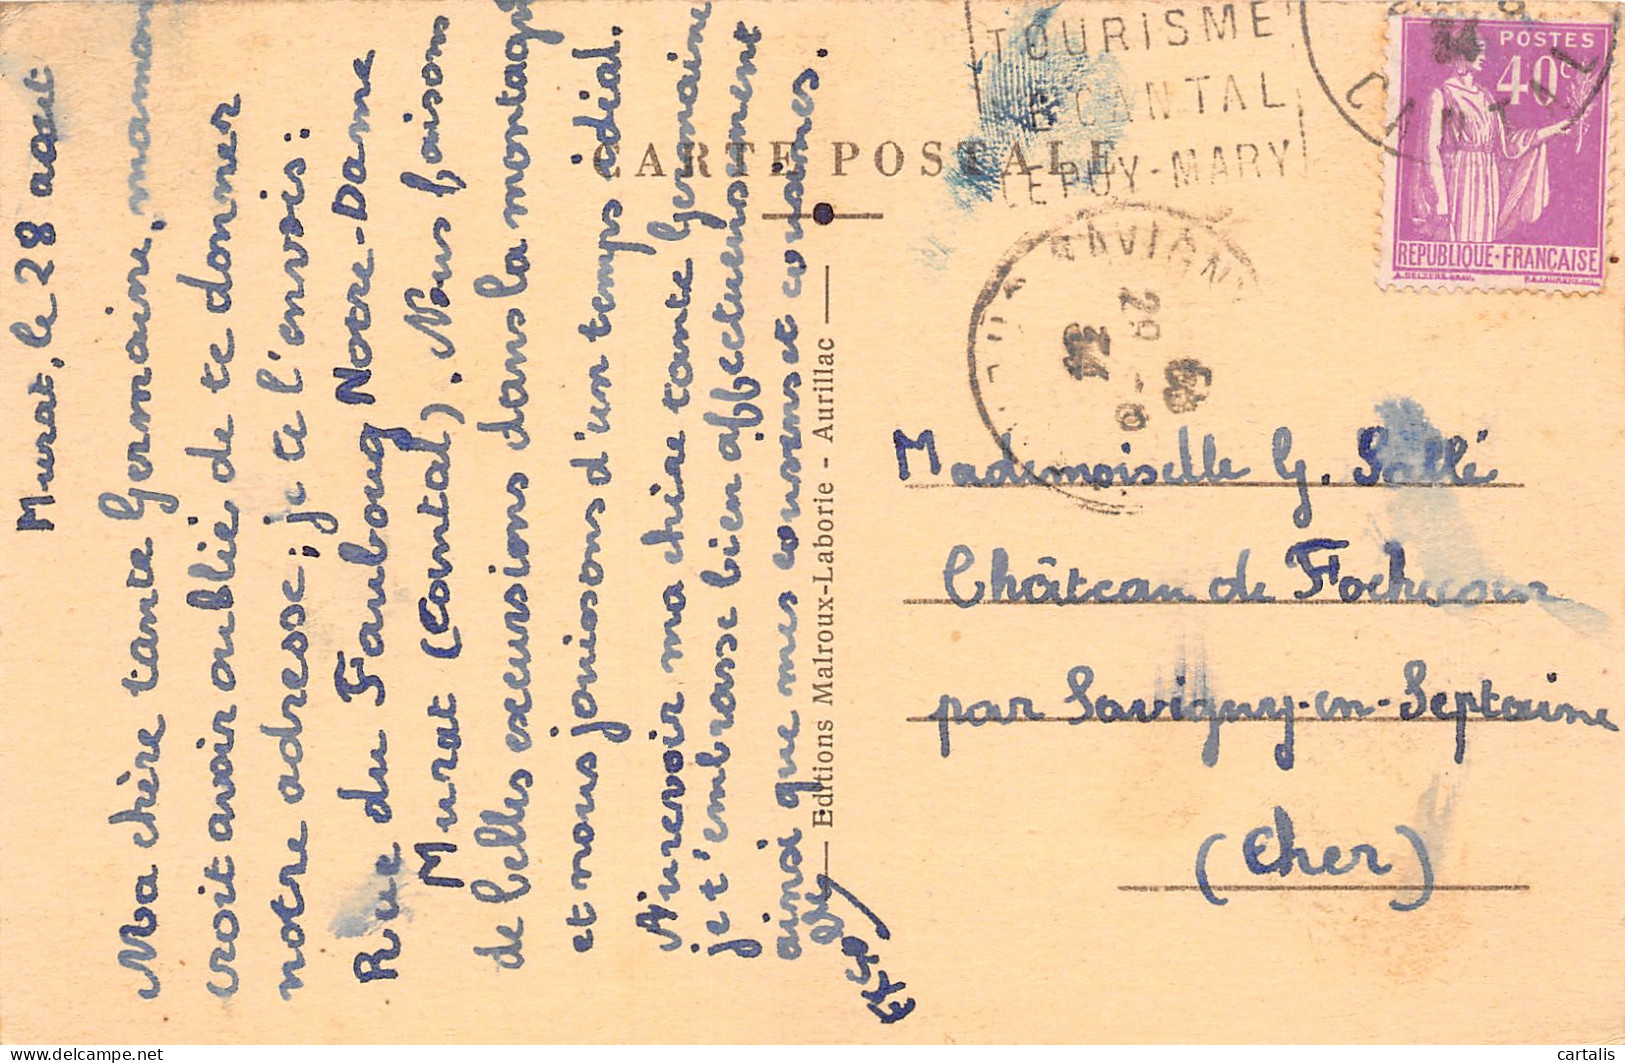 Murat, le 28 aout
Ma chère tante Germaine, maman
croit avoir oublié de te donner
notre adresse ; je te l'envois :
Rue du Faubourg Notre-Dame
Murat (Cantal). Nous faisons
de belles excursions dans la montagne
et nous jouissons d'un temps idéal.
Au revoir ma chère tante Germaine
je t'embrasse bien affectueusement
ainsi que mes cousins et cousines.
CARTE POSTALE
Editions Malroux-Laborie - Aurillac
TOURISME
CANTAL
LE PUY-MARY
CANTAL
POSTES
40c
REPUBLIQUE-FRANÇAISE
SAVIGNY
29 -8
34
Mademoiselle G. Sallé
Château de
par Savigny-en-Septaine
(Cher)
cartalis
delcampe.net